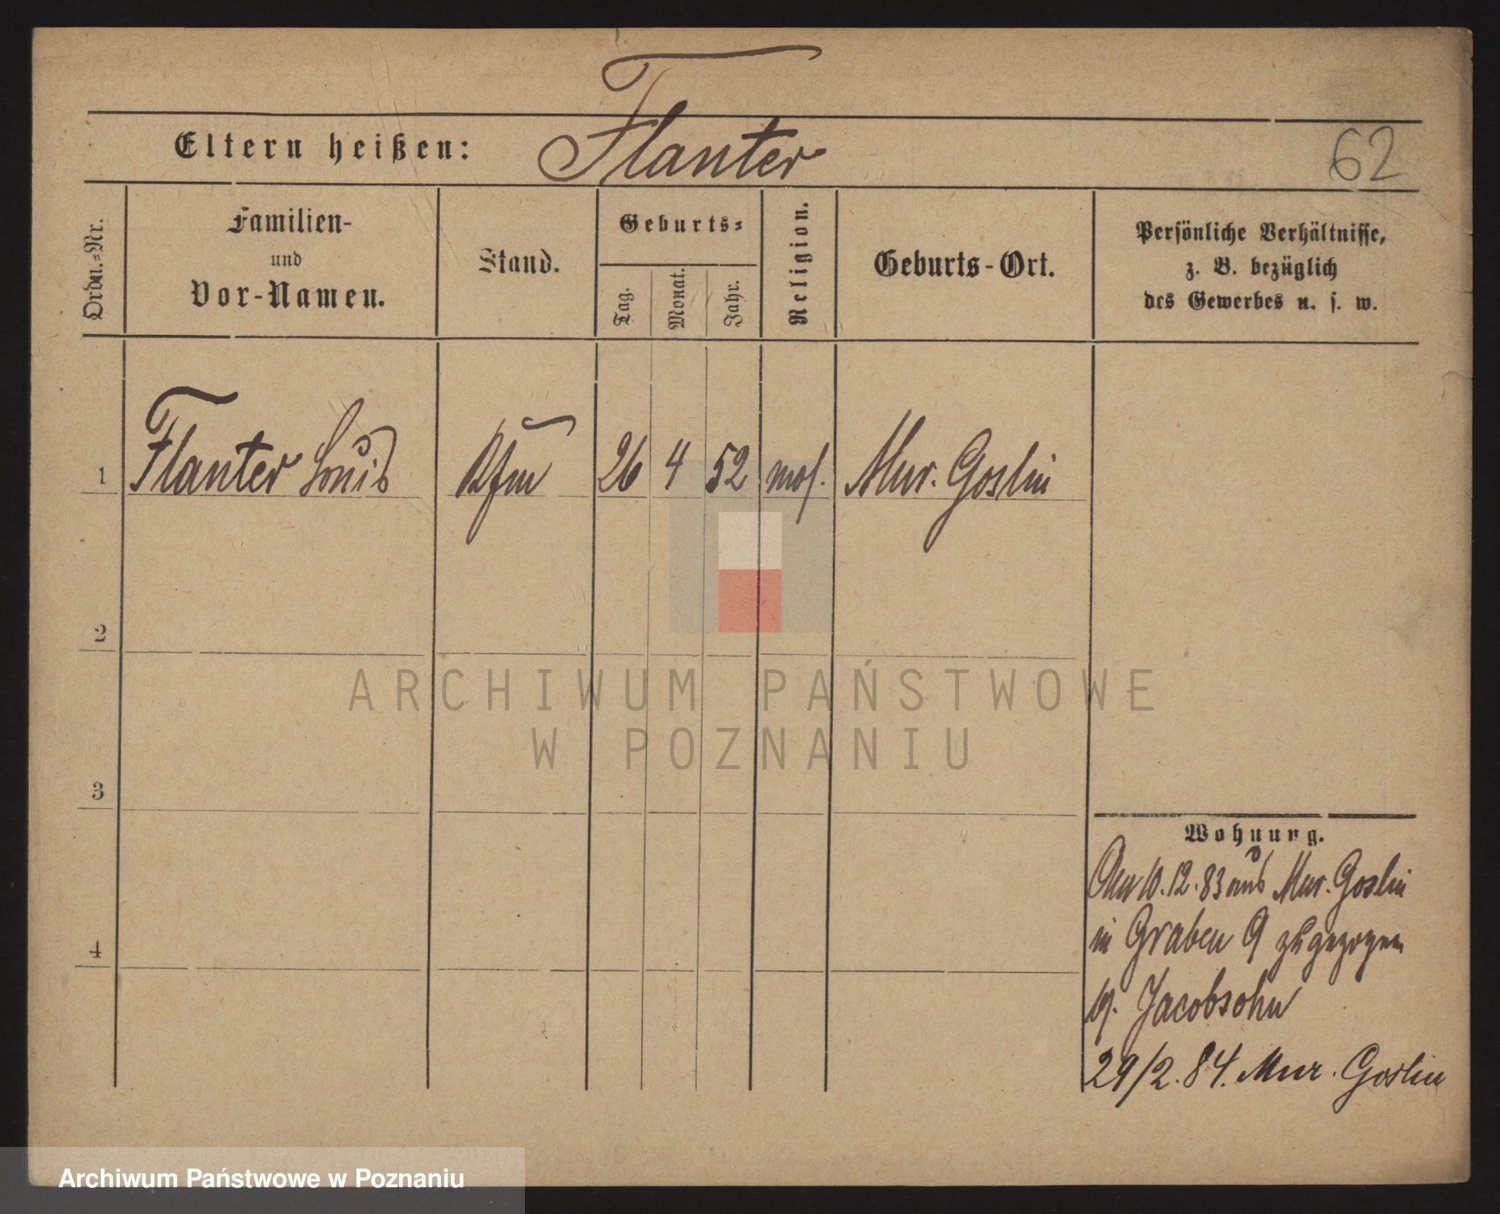 Flanter
62
Eltern heißen:
Ordn.=Nr.
Familien-
und
Vor-Namen.
Stand.
Geburts=
Tag.
Monat.
Jahr.
Religion.
Geburts-Ort.
Persönliche Verhältnisse,
z. B. bezüglich
des Gewerbes u. s. w.
1 Flanter Louis Kfm 26 4 52 mos. Mur. Goslin
2
3
4
Wohnung.
Am 10.12.83 aus Mur. Goslin
in Graben 9 zugezogen
Jacobsohn
29/2.84. Mur. Goslin
ARCHIWUM PAŃSTWOWE
W POZNANIU
Archiwum Państwowe w Poznaniu